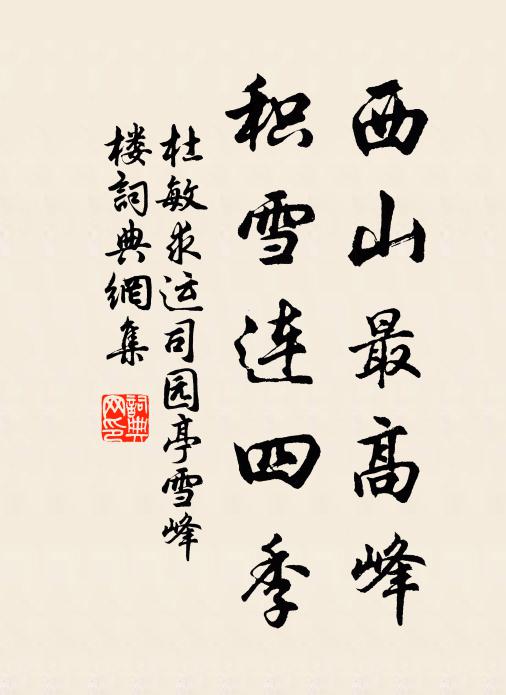 西山最高峰
积雪连四季
杜敏求运司园亭雪峰
楼詞典網集
詞典
网印